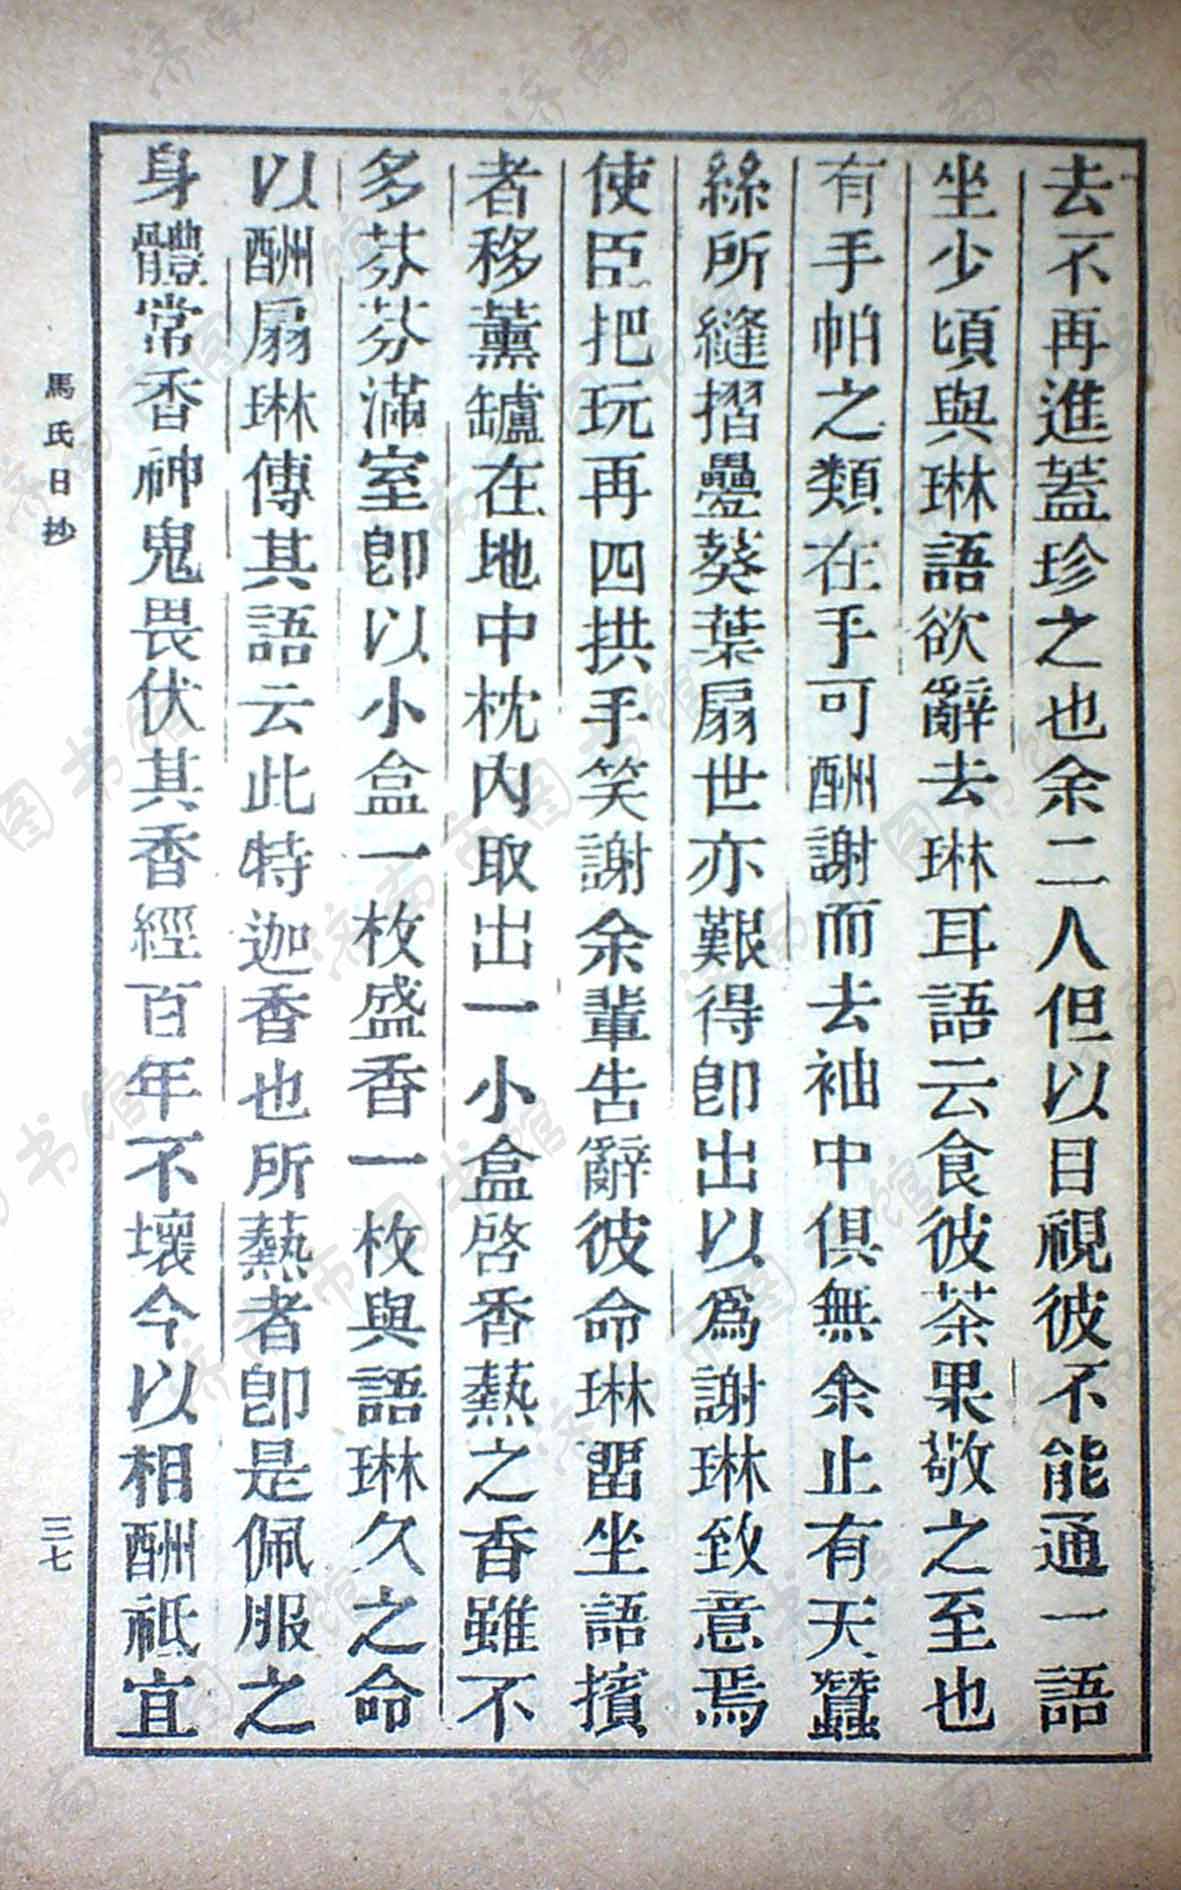 去不再進蓋珍之也余二人但以目視彼不能通一語
坐少頃與琳語欲辭去琳耳語云食彼茶果敬之至也
有手帕之類在手可酬謝而去袖中俱無余止有天蠶
絲所縫摺疊葵葉扇世亦艱得卽出以爲謝琳致意焉
使臣把玩再四拱手笑謝余輩告辭彼命琳留坐語擯
者移薰罏在地中枕內取出一小盒啓香爇之香雖不
多芬芬滿室卽以小盒一枚盛香一枚與語琳久之命
以酬扇琳傳其語云此特迦香也所爇者卽是佩服之
身體常香神鬼畏伏其香經百年不壞今以相酬祗宜
馬氏日抄
三七